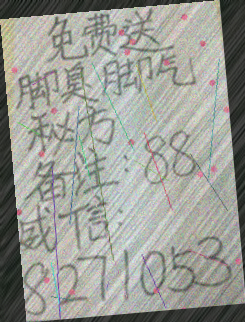 免费送
脚臭脚气
秘方
备注：88
威信：
8271053